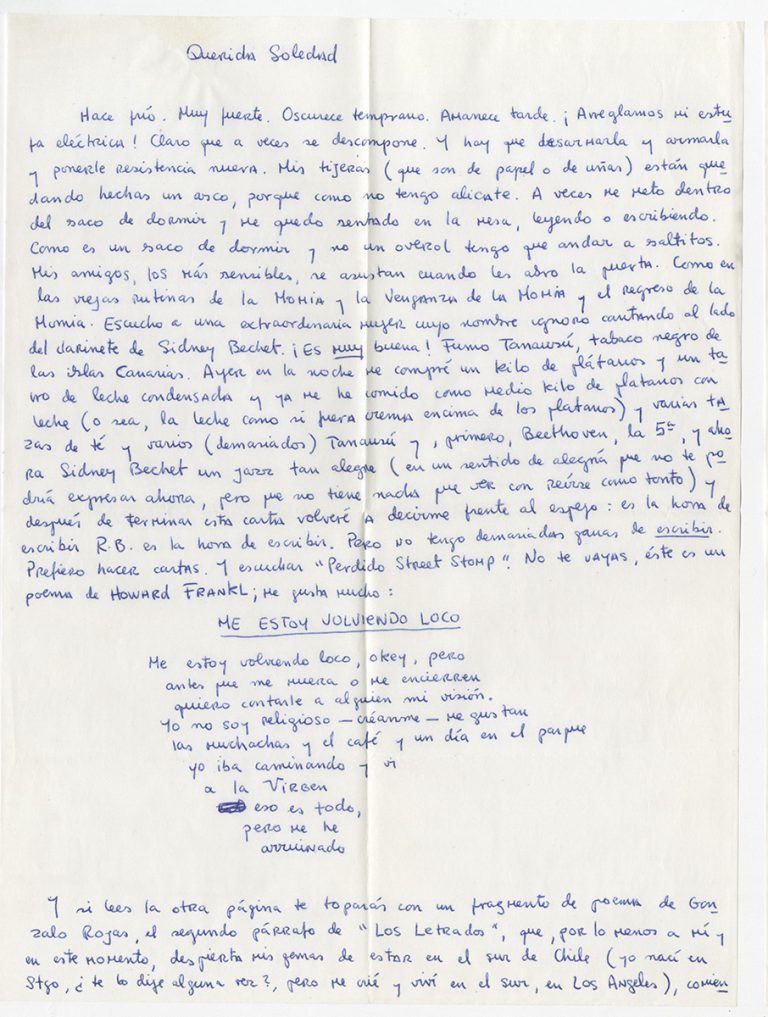 Querida Soledad
Hace frío. Muy fuerte. Oscurece temprano. Amanece tarde. ¡Arreglamos mi estu
fa eléctrica! Claro que a veces se descompone. Y hay que desarmarla y armarla
y ponerle resistencia nueva. Mis tijeras (que son de papel o de uñas) están que
dando hechas un asco, porque como no tengo alicate. A veces me meto dentro
del saco de dormir y me quedo sentado en la mesa, leyendo o escribiendo.
Como es un saco de dormir y no un overol tengo que andar a saltitos.
Mis amigos, los más sensibles, se asustan cuando les abro la puerta. Como en
las viejas rutinas de la Momia y la Venganza de la Momia y el regreso de la
Momia. Escucho a una extraordinaria mujer cuyo nombre ignoro cantando al lado
del clarinete de Sidney Bechet. ¡Es muy buena! Fumo Tanausú, tabaco negro de
las islas Canarias. Ayer en la noche me compré un kilo de plátanos y un ta
rro de leche condensada y ya me he comido como medio kilo de platanos con
leche (o sea, la leche como si fuera crema encima de los platanos) y varias ta
zas de té y varios (demasiados) Tanausú y, primero, Beethoven, la 5ª, y aho
ra Sidney Bechet un jazz tan alegre (en un sentido de alegría que no te po
dría expresar ahora, pero que no tiene nada que ver con reírse como tonto) y
después de terminar esta carta volveré a decirme frente al espejo: es la hora de
escribir R.B. es la hora de escribir. Pero no tengo demasiadas ganas de escribir.
Prefiero hacer cartas. Y escuchar "Perdido Street Stomp". No te vayas, éste es un
poema de Howard Frankl; me gusta mucho:
ME ESTOY VOLVIENDO LOCO
Me estoy volviendo loco, okey, pero
antes que me muera o me encierren
quiero contarle a alguien mi visión.
Yo no soy religioso — créanme — me gustan
las muchachas y el café y un día en el parque
yo iba caminando y vi
a la Virgen
eso es todo,
pero me he
arruinado
Y si lees la otra página te toparás con un fragmento de poema de Gon
zalo Rojas, el segundo párrafo de "Los Letrados", que, por lo menos a mí y
en este momento, despierta mis ganas de estar en el sur de Chile (yo nací en
Stgo, ¿te lo dije alguna vez?, pero me crié y viví en el sur, en Los Angeles), comien